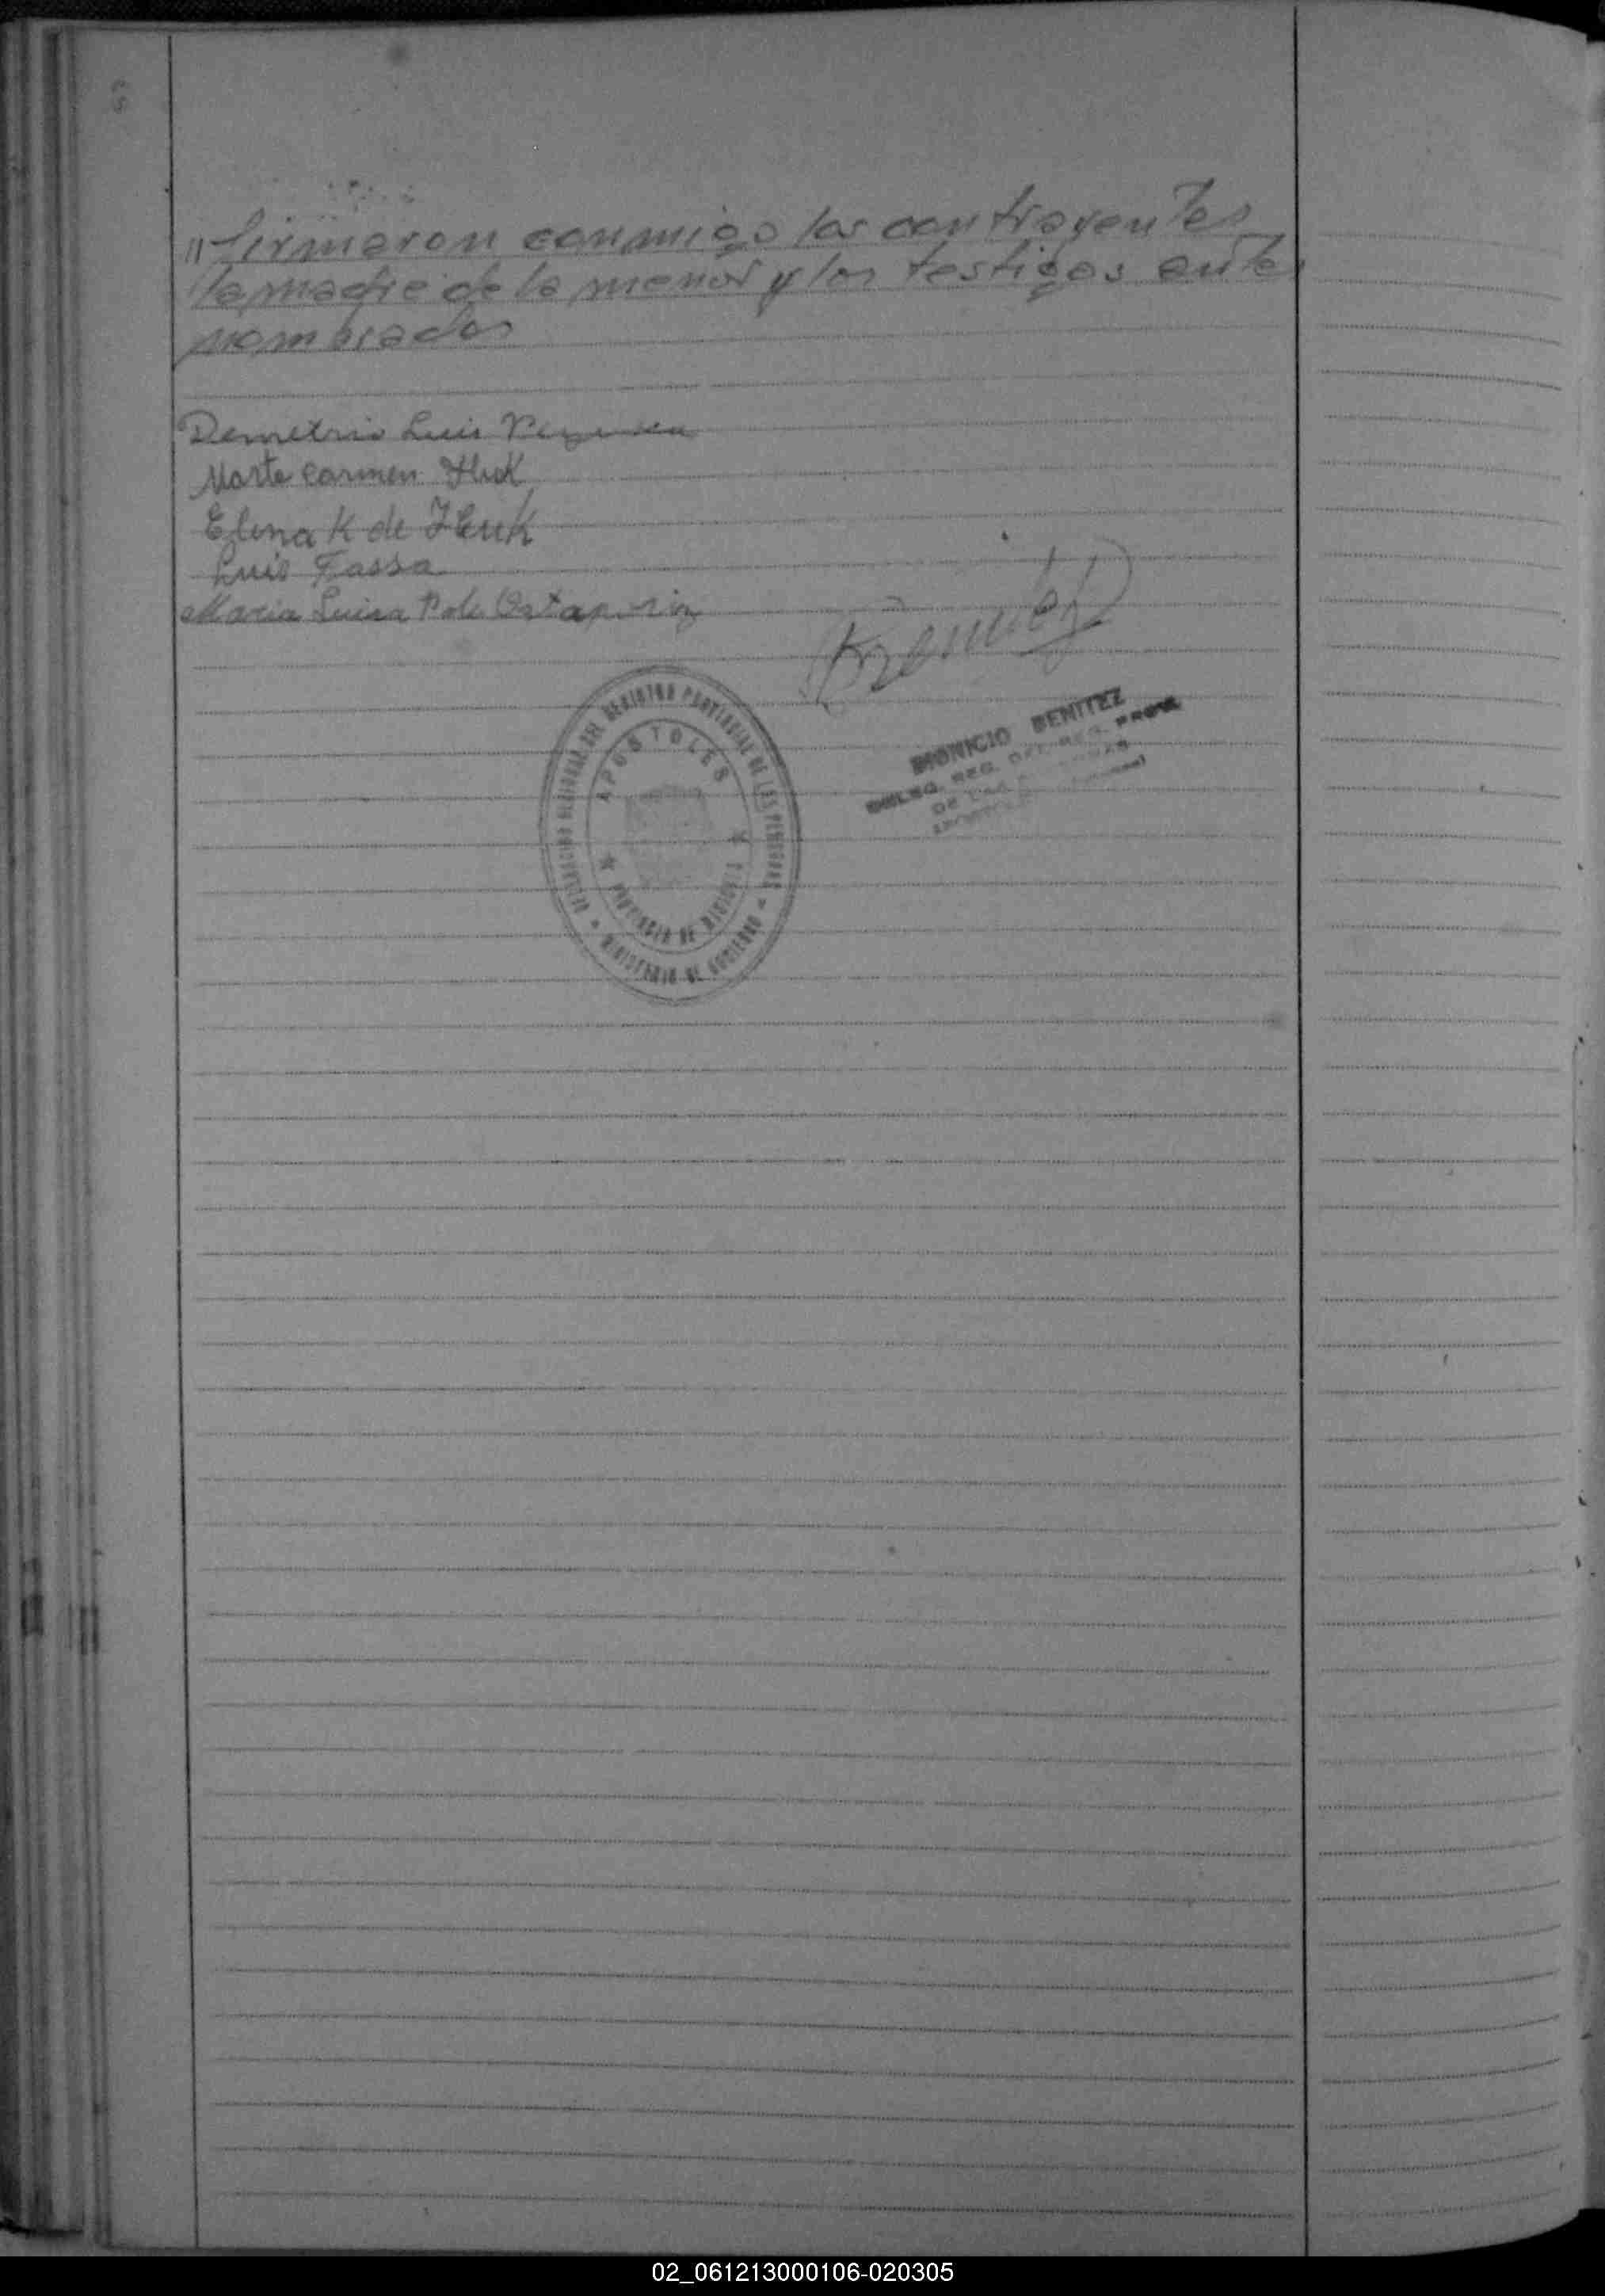 "firmaron conmigo los contrayentes
la madre de la menor y los testigos ante
nombrados
Demetrio Luis
Marta Carmen Huk
Elena K de Huk
Luis Fassa
Maria Luisa P. de Ostapowicz
DELEGACION REGIONAL DEL REGISTRO PROVINCIAL DE LAS PERSONAS
APOSTOLES
PROVINCIA DE MISIONES
MINISTERIO DE GOBIERNO
DIONICIO BENITEZ
DELEG. REG. DEL REG. PROV.
DE LAS
02_061213000106-020305